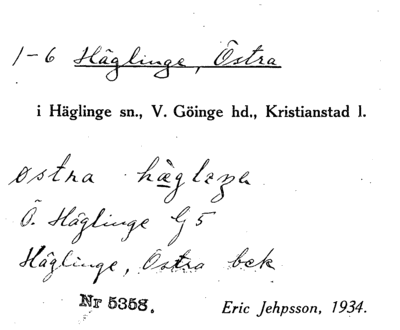 1-6 Häglinge, Östra
i Häglinge sn., V. Göinge hd., Kristianstad l.
østna hægleŋe
Ö. Häglinge G5
Häglinge, Östra bek
Nr 5358.
Eric Jehpsson, 1934.